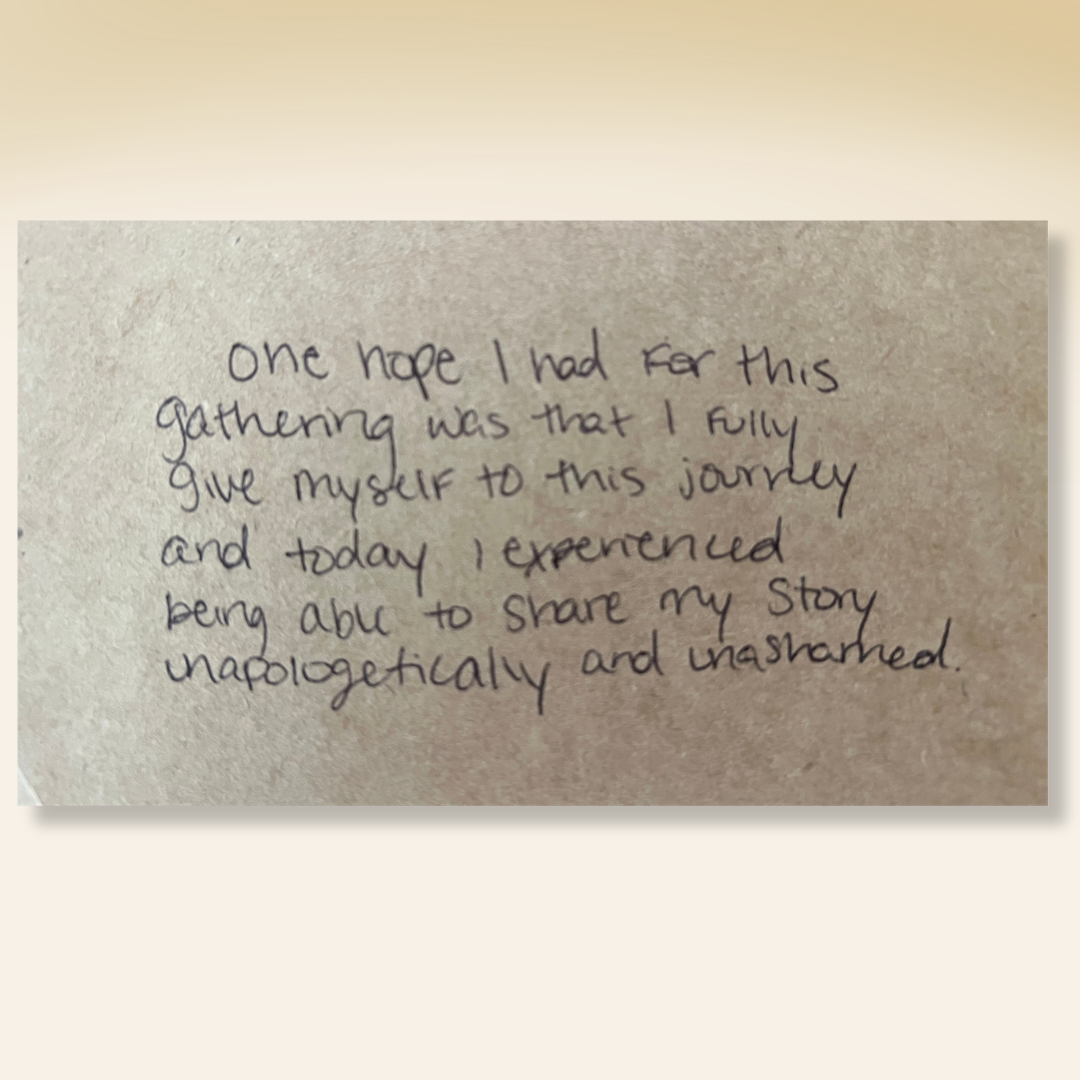 One hope I had for this
gathering was that I fully
give myself to this journey
and today I experienced
being able to share my story
unapologetically and unashamed.